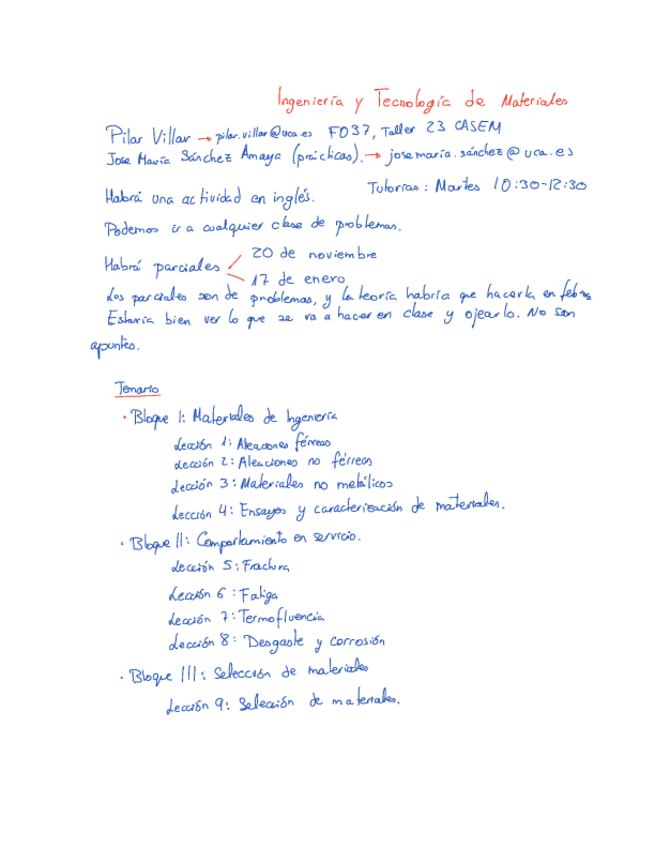 Ingeniería y Tecnología de Materiales
Pilar Villar → pilar.villar@uca.es F037, Taller 23 CASEM
Jose María Sánchez Amaya (prácticas). → josemaria.sánchez@uca.es
Habrá una actividad en inglés. Tutorías: Martes 10:30-12:30
Podemos ir a cualquier clase de problemas.
Habrá parciales
20 de noviembre
17 de enero
Los parciales son de problemas, y la teoría habría que hacerla en
Estaría bien ver lo que se va a hacer en clase y ojearlo. No son
apuntes.
Temario
· Bloque I: Materiales de Ingeniería
Lección 1: Aleaciones férreas
Lección 2: Aleaciones no férreas
Lección 3: Materiales no metálicos
Lección 4: Ensayos y caracterización de materiales.
· Bloque II: Comportamiento en servicio.
Lección 5: Fractura
Lección 6: Fatiga
Lección 7: Termofluencia
Lección 8: Desgaste y corrosión
· Bloque III: Selección de materiales
Lección 9: Selección de materiales.